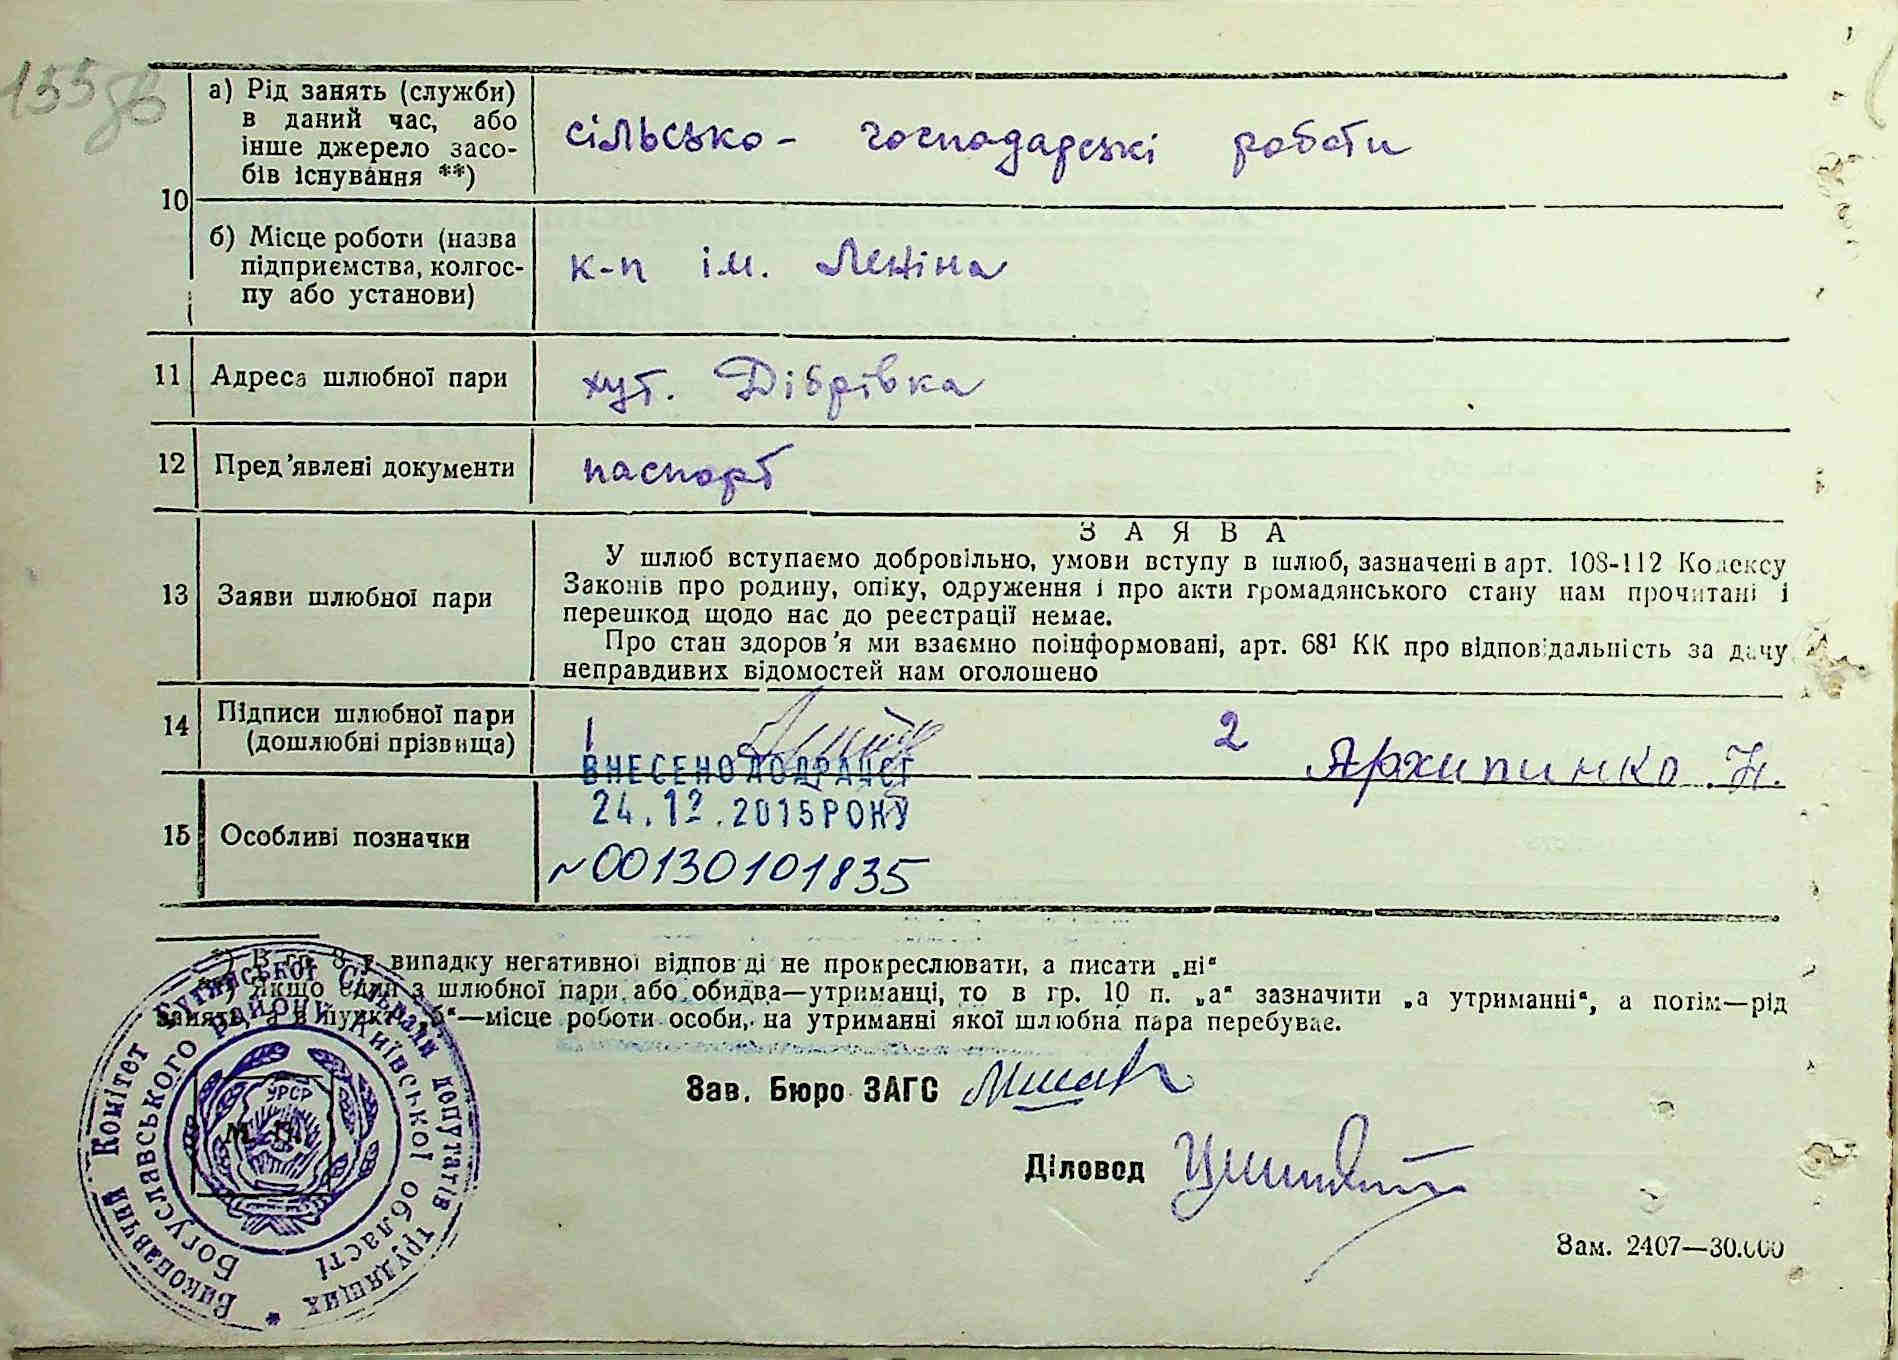 155 зв
а) Рід занять (служби)
в даний час, або
інше джерело засо-
бів існування **)
сільсько - господарські роботи
10
б) Місце роботи (назва
підприємства, колгос-
пу або установи)
к-п ім. Леніна
11 Адреса шлюбної пари
хут. Дібрівка
12 Пред'явлені документи
паспорт
13 Заяви шлюбної пари
ЗАЯВА
У шлюб вступаємо добровільно, умови вступу в шлюб, зазначені в арт. 108-112 Кодексу
Законів про родину, опіку, одруження і про акти громадянського стану нам прочитані і
перешкод щодо нас до реєстрації немає.
Про стан здоров'я ми взаємно поінформовані, арт. 68¹ КК про відповідальність за дачу
неправдивих відомостей нам оголошено
14 Підписи шлюбної пари
(дошлюбні прізвища)
1
2 Архипинко Н.
15 Особливі позначки
ВНЕСЕНО ДО ДРАЦСГ
24.12.2015 РОКУ
№00130101835
*) В гр. 8 у випадку негативної відповіді не прокреслювати, а писати „ні“
**) Якщо один з шлюбної пари, або обидва—утриманці, то в гр. 10 п. „а“ зазначити „а утриманні“, а потім—рід
занять, а в пункті „б“—місце роботи особи, на утриманні якої шлюбна пара перебуває.
Зав. Бюро ЗАГС
Діловод
М. П.
УРСР
Виконавчий Комітет сільради депутатів трудящих
Богуславського району Київської області
Зам. 2407—30.000